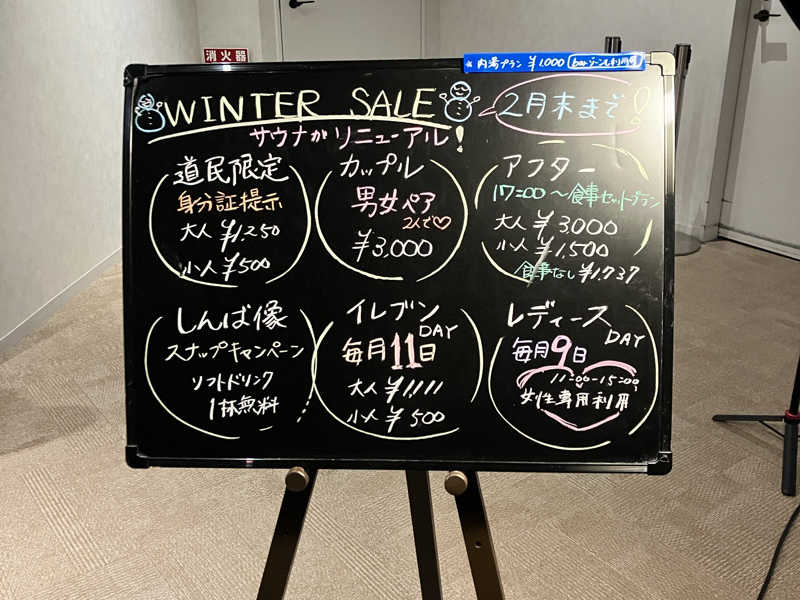 消火器
★ 内湯プラン ¥1,000
WINTER SALE
2月末まで!
サウナがリニューアル!
道民限定
身分証提示
大人 ¥1,250
小人 ¥500
カップル
男女ペア
2人で♡
¥3,000
アフター
17:00〜食事セットプラン
大人 ¥3,000
小人 ¥1,500
食事なし ¥1,737
しんば像
スナップキャンペーン
ソフトドリンク
1杯無料
イレブン
DAY
毎月11日
大人 ¥1,111
小人 ¥500
レディース
DAY
毎月9日
11:00-15:00
女性専用利用